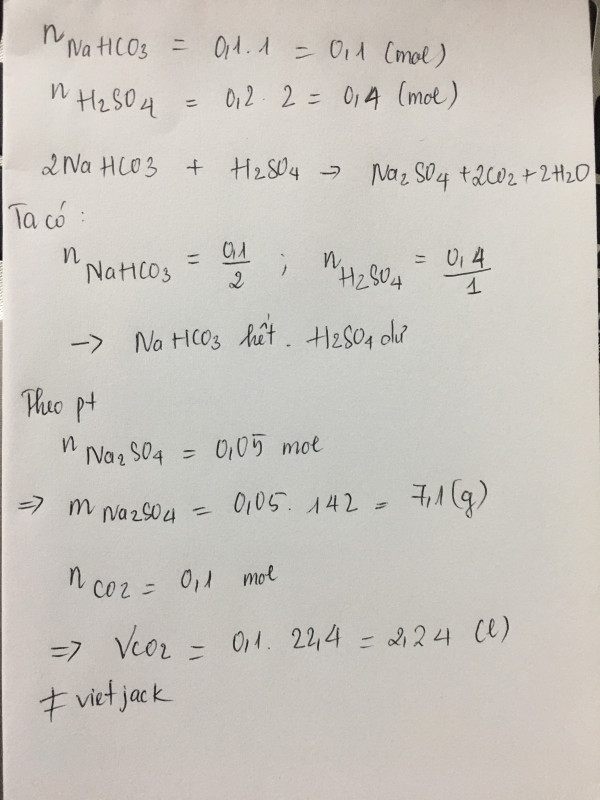 n NaHCO3 = 0,1 . 1 = 0,1 (mol)
n H2SO4 = 0,2 . 2 = 0,4 (mol)
2NaHCO3 + H2SO4 → Na2SO4 + 2CO2 + 2H2O
Ta có :
n NaHCO3 = 0,1/2 ; n H2SO4 = 0,4/1
→ NaHCO3 hết . H2SO4 dư
Theo pt
n Na2SO4 = 0,05 mol
⇒ m Na2SO4 = 0,05 . 142 = 7,1 (g)
n CO2 = 0,1 mol
⇒ VCO2 = 0,1 . 22,4 = 2,24 (l)
≠ vietjack